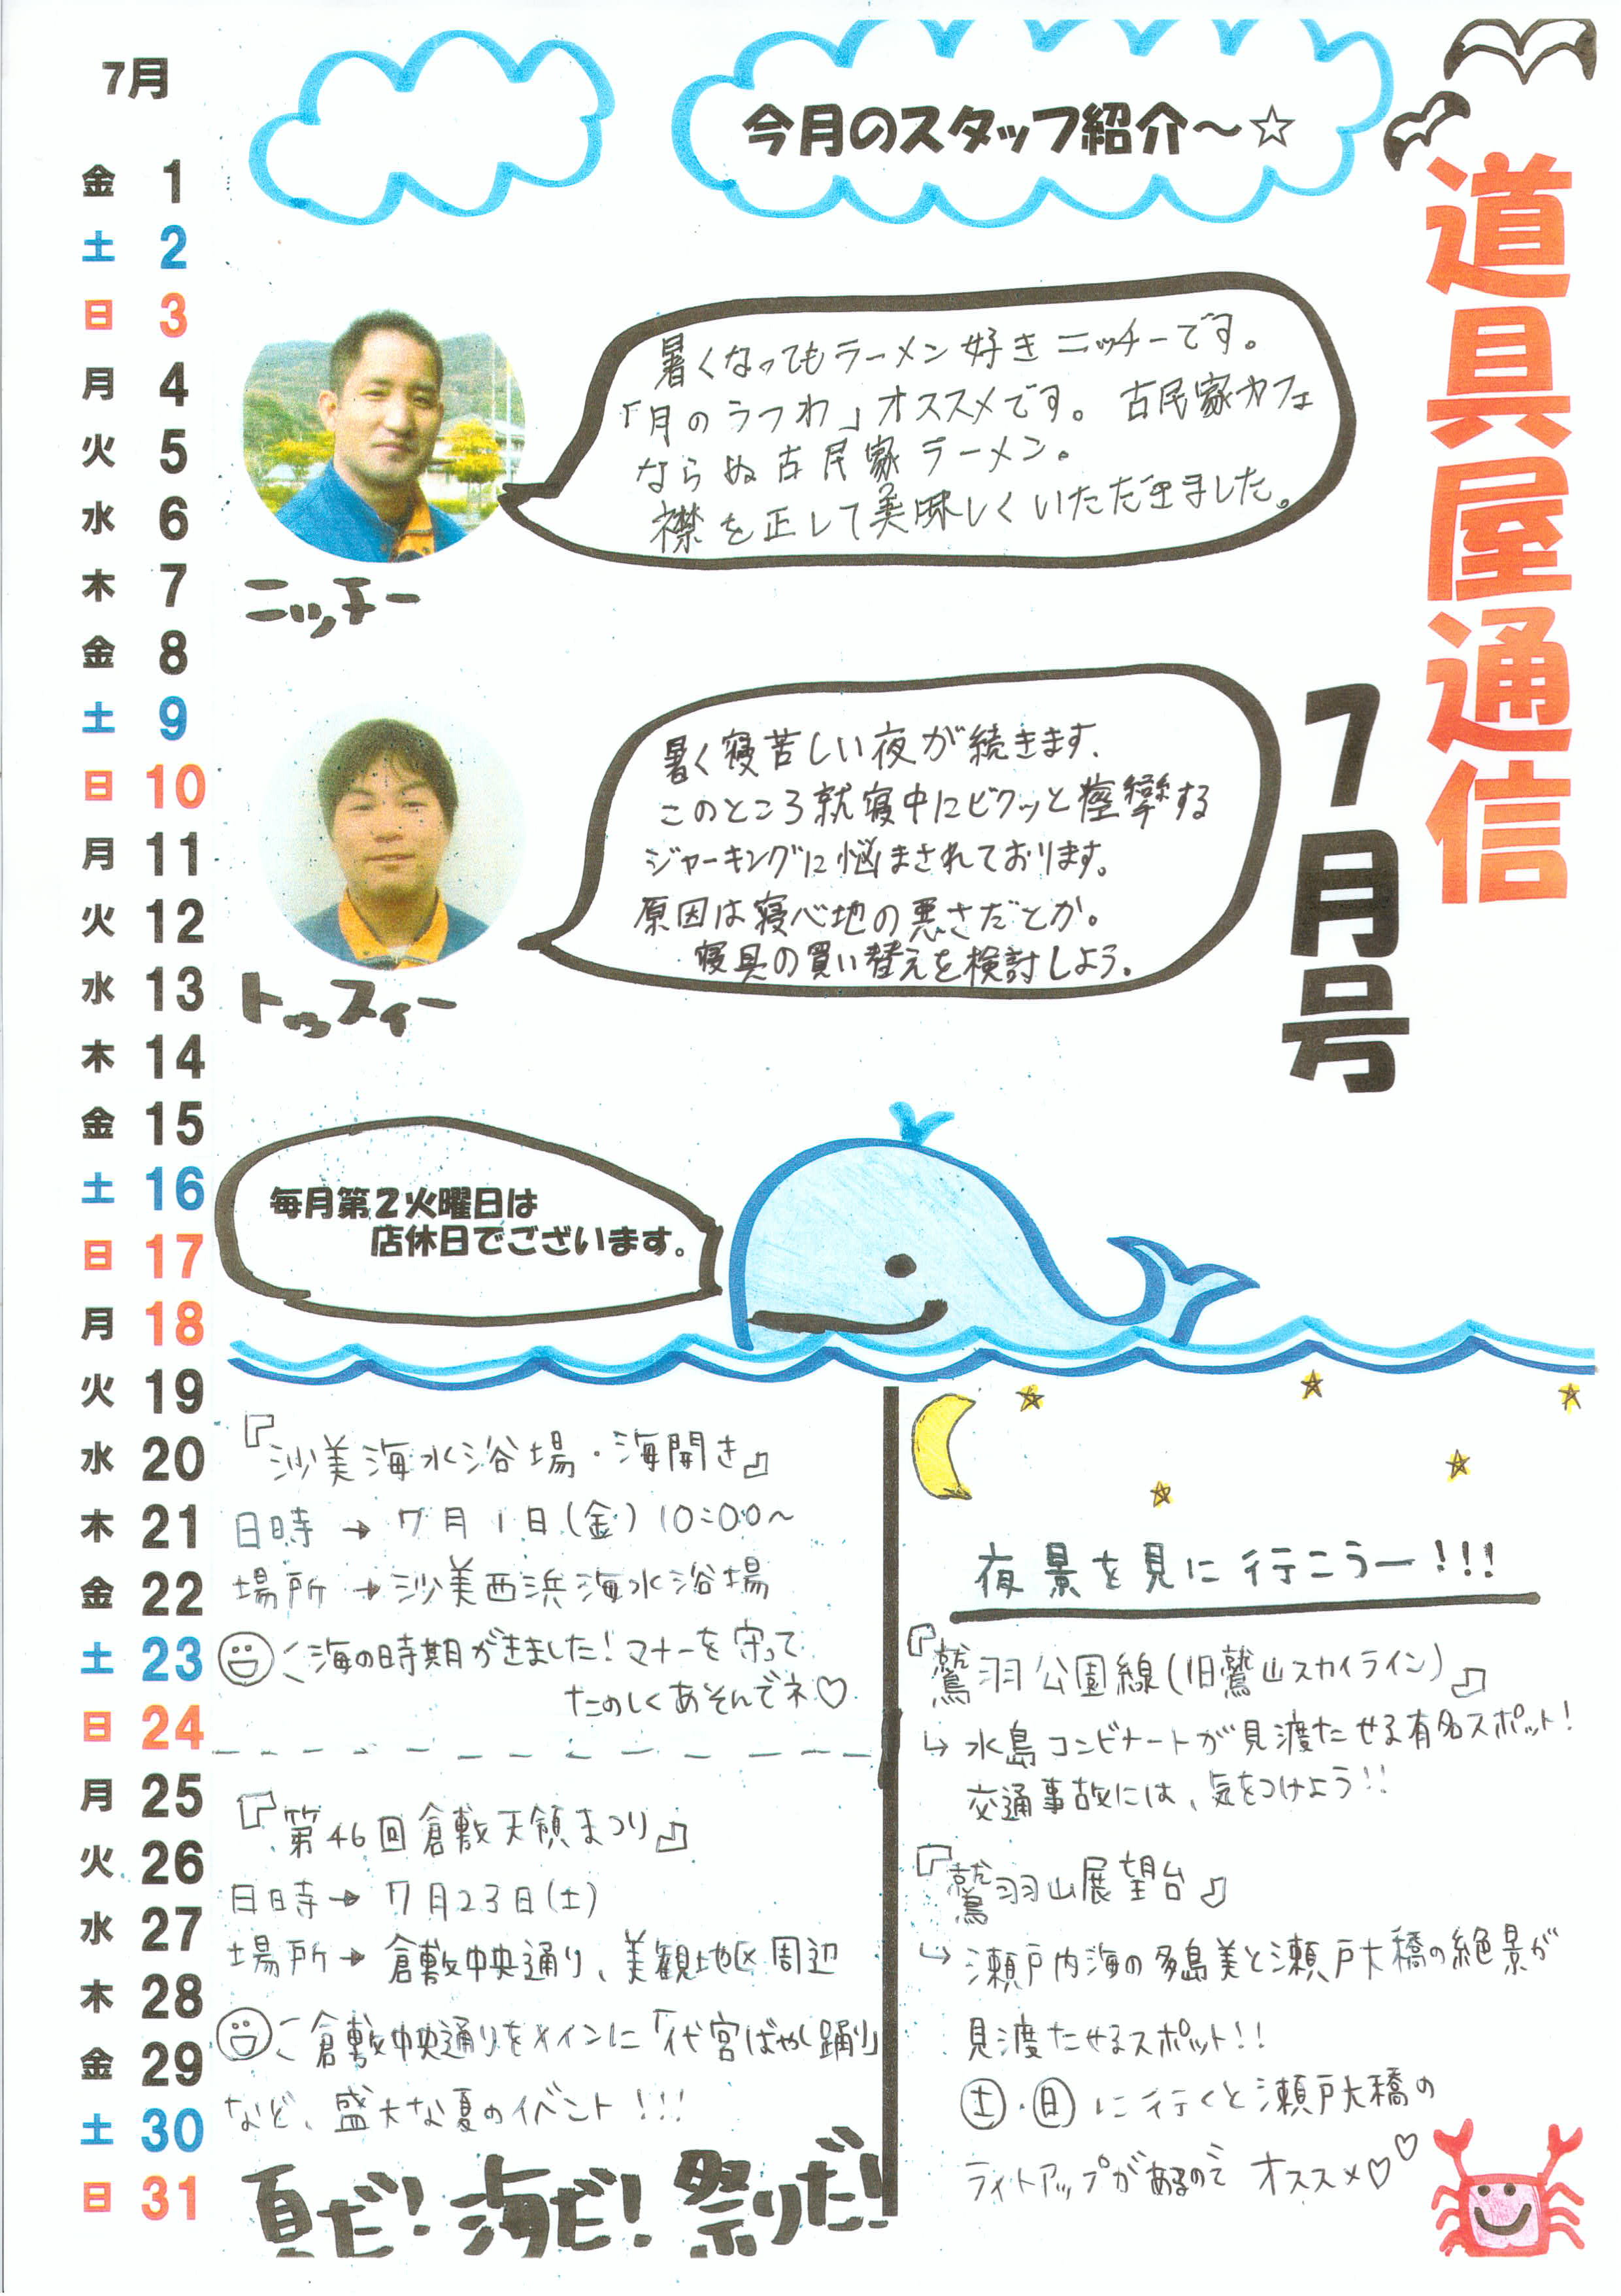 7月
金 1
土 2
日 3
月 4
火 5
水 6
木 7
金 8
土 9
日 10
月 11
火 12
水 13
木 14
金 15
土 16
日 17
月 18
火 19
水 20
木 21
金 22
土 23
日 24
月 25
火 26
水 27
木 28
金 29
土 30
日 31
今月のスタッフ紹介～☆
道具屋通信
7月号
暑くなってもラーメン好きニッチーです。
「月のうつわ」オススメです。古民家カフェ
ならぬ古民家ラーメン。
襟を正して美味しくいただきました。
ニッチー
暑く寝苦しい夜が続きます、
このところ就寝中にビクッと痙攣する
ジャーキングに悩まされております。
原因は寝心地の悪さだとか。
寝具の買い替えを検討しよう。
トゥスィー
毎月第2火曜日は
店休日でございます。
『沙美海水浴場・海開き』
日時→7月1日(金)10:00～
場所→沙美西浜海水浴場
海の時期がきました!マナーを守って
たのしくあそんでネ♡
『第46回倉敷天領まつり』
日時→7月23日(土)
場所→倉敷中央通り、美観地区周辺
倉敷中央通りをメインに「代官ばやし踊り」
など、盛大な夏のイベント!!!
夏だ!海だ!祭りだ!!
夜景を見に行こうー!!!
『鷲羽公園線(旧鷲山スカイライン)』
↳水島コンビナートが見渡たせる有名スポット!
交通事故には、気をつけよう!!
『鷲羽山展望台』
↳瀬戸内海の多島美と瀬戸大橋の絶景が
見渡たせるスポット!!
土・日に行くと瀬戸大橋の
ライトアップがあるので オススメ♡♡